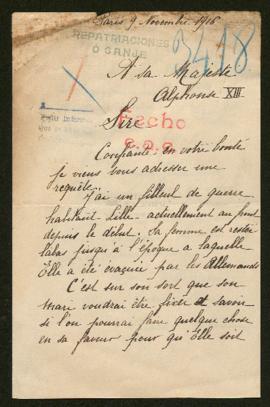 Paris 9 Novembre 1916
REPATRIACIONES
O CANJE
3418
A Sa Majesté
Alphonse XIII
Hecho
Sire
Confiante en votre bonté
je viens vous adresser une
requête.
J'ai un filleul de guerre
habitant Lille actuellement au front
depuis le début. Sa femme est restée
labas jusqu'à l'époque a laquelle
Elle a été évacuée par les Allemands
C'est sur son sort que son
mari voudrai être fixé et savoir
si l'on pourrai faire quelque chose
en sa faveur pour qu'Elle soit